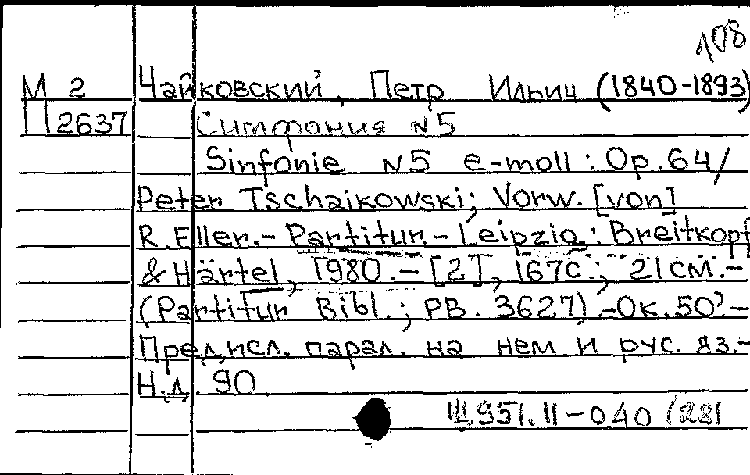 108
М 2 Чайковский, Петр Ильич (1840-1893)
П2637 Симфония N5
Sinfonie N5 e-moll: Op.64/
Peter Tschaikowski; Vorw. [von]
R.Eller.- Partitur.- Leipzig: Breitkopf
& Härtel, 1980.- [2], 167с.; 21см.-
(Partitur Bibl.; PB. 3627) -Ок.50'-
Пред.исл. парал. на нем и рус. яз.-
Н.д. 90
Щ951.11-040 (281